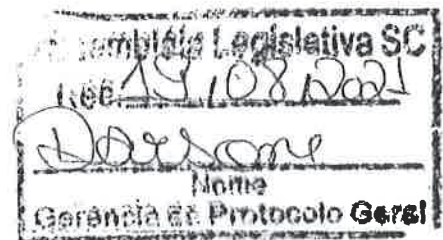 Assembléia Legislativa SC
Rec. 19/08/2021
Nome
Gerência de Protocolo Geral